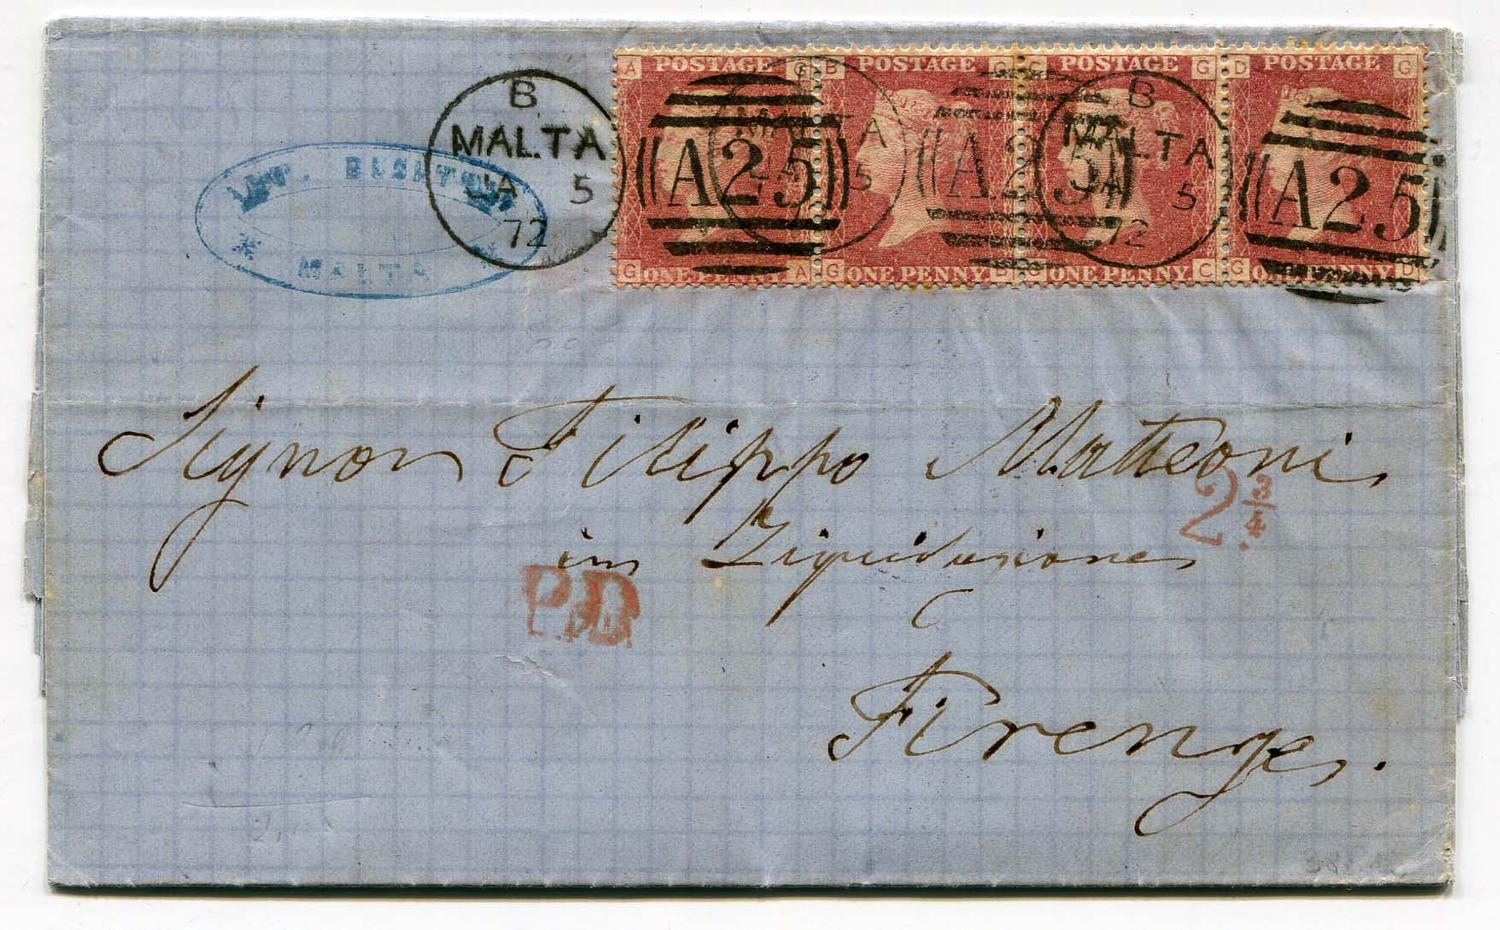 A POSTAGE G B POSTAGE G C POSTAGE G D POSTAGE G
B
MALTA
JA 5
72
A25
MALTA
JA 5
A25
B
MALTA
JA 5
72
A25
G ONE PENNY A G ONE PENNY B G ONE PENNY C G ONE PENNY D
MALTA
Signor Filippo Matteoni
in Liquidazione
2 3/4
P.D.
Firenze.